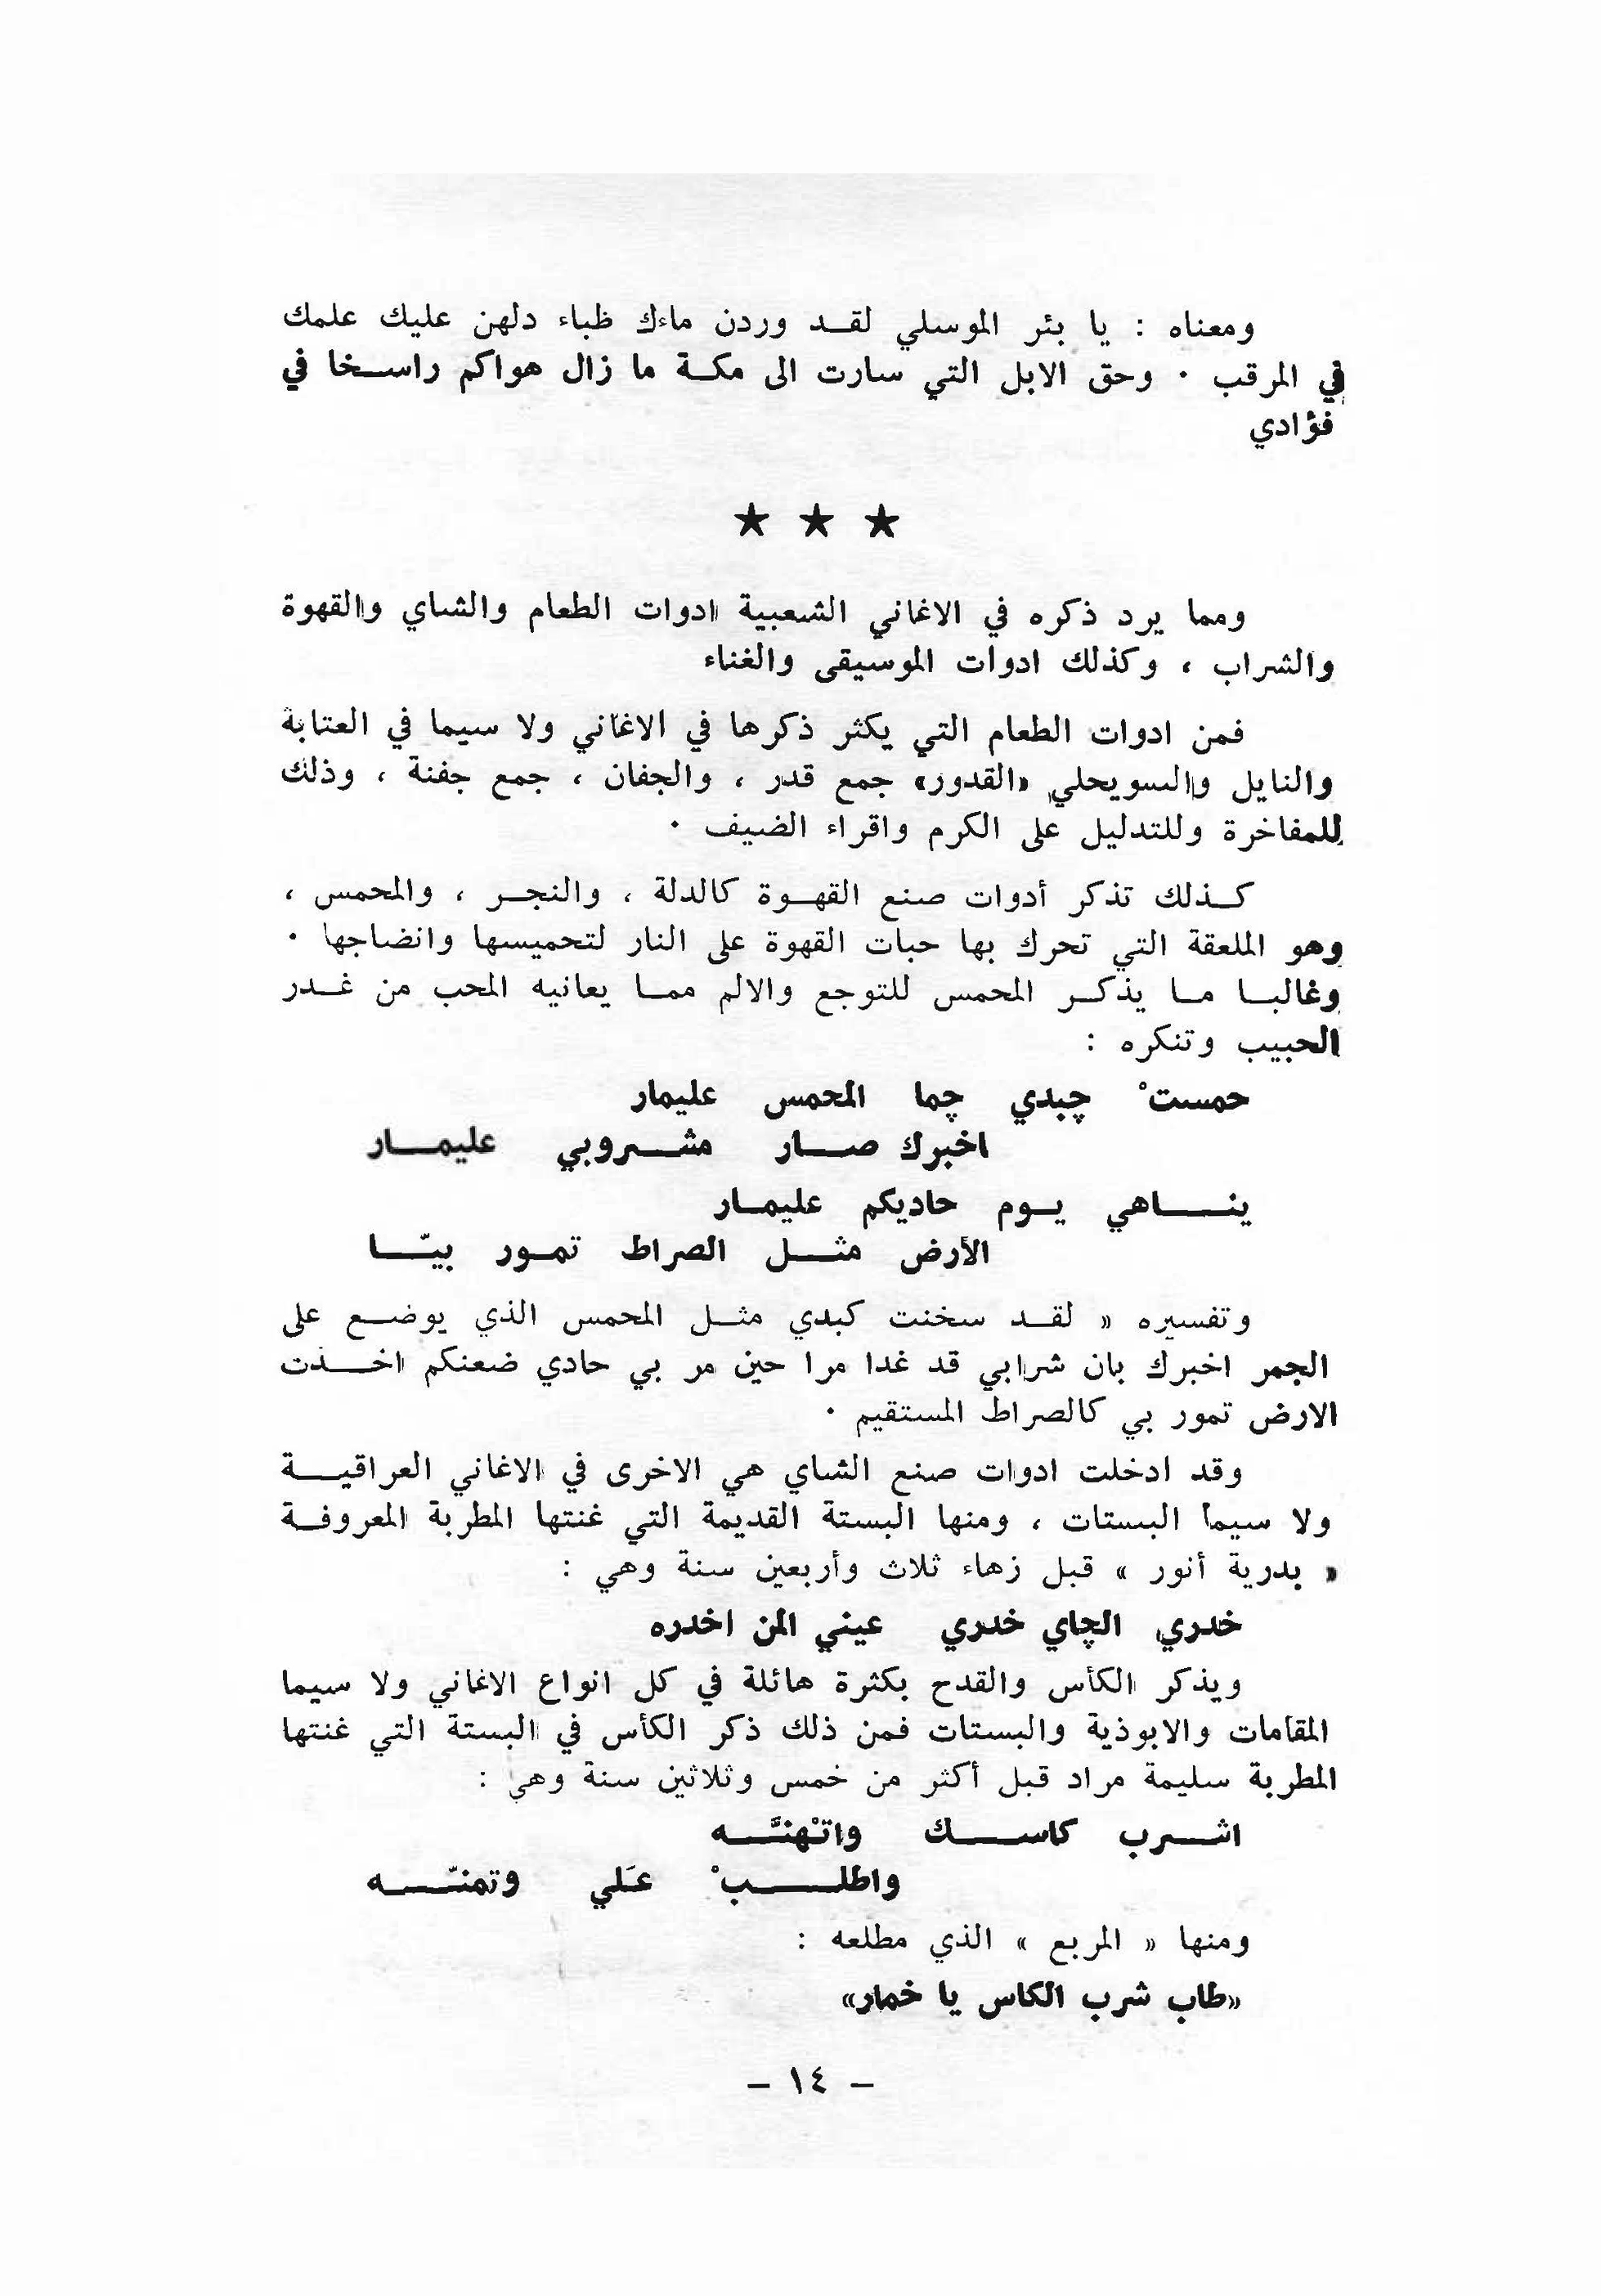 ومعناه : يا بئر الموسلي لقد وردن ماءك ظباء دلهن عليك علمك
في المرقب ٠ وحق الابل التي سارت الى مكة ما زال هواكم راسخا في
فؤادي
★ ★ ★
ومما يرد ذكره في الاغاني الشعبية ادوات الطعام والشاي والقهوة
والشراب ، وكذلك ادوات الموسيقى والغناء
فمن ادوات الطعام التي يكثر ذكرها في الاغاني ولا سيما في العتابة
والنايل والسويحلي «القدور» جمع قدر ، والجفان ، جمع جفنة ، وذلك
للمفاخرة وللتدليل على الكرم واقراء الضيف ٠
كذلك تذكر أدوات صنع القهوة كالدلة ، والنجر ، والمحمس ،
وهو الملعقة التي تحرك بها حبات القهوة على النار لتحميسها وانضاجها ٠
وغالبا ما يذكر المحمس للتوجع والالم مما يعانيه المحب من غدر
الحبيب وتنكره :
حمستْ چبدي چما المحمس عليمار
اخبرك صار مشروبي عليمار
يناهي يوم حاديكم عليمار
الأرض مثل الصراط تمور بيّا
وتفسيره « لقد سخنت كبدي مثل المحمس الذي يوضع على
الجمر اخبرك بان شرابي قد غدا مرا حين مر بي حادي ضعنكم اخذت
الارض تمور بي كالصراط المستقيم ٠
وقد ادخلت ادوات صنع الشاي هي الاخرى في الاغاني العراقية
ولا سيما البستات ، ومنها البستة القديمة التي غنتها المطربة المعروفة
« بدرية أنور » قبل زهاء ثلاث وأربعين سنة وهي :
خدري الچاي خدري عيني المن اخدره
ويذكر الكأس والقدح بكثرة هائلة في كل انواع الاغاني ولا سيما
المقامات والابوذية والبستات فمن ذلك ذكر الكأس في البستة التي غنتها
المطربة سليمة مراد قبل أكثر من خمس وثلاثين سنة وهي :
اشرب كاسك واتْهنَّه
واطلبْ عَلي وتمنّه
ومنها « المربع » الذي مطلعه :
«طاب شرب الكاس يا خمار»
– ١٤ –